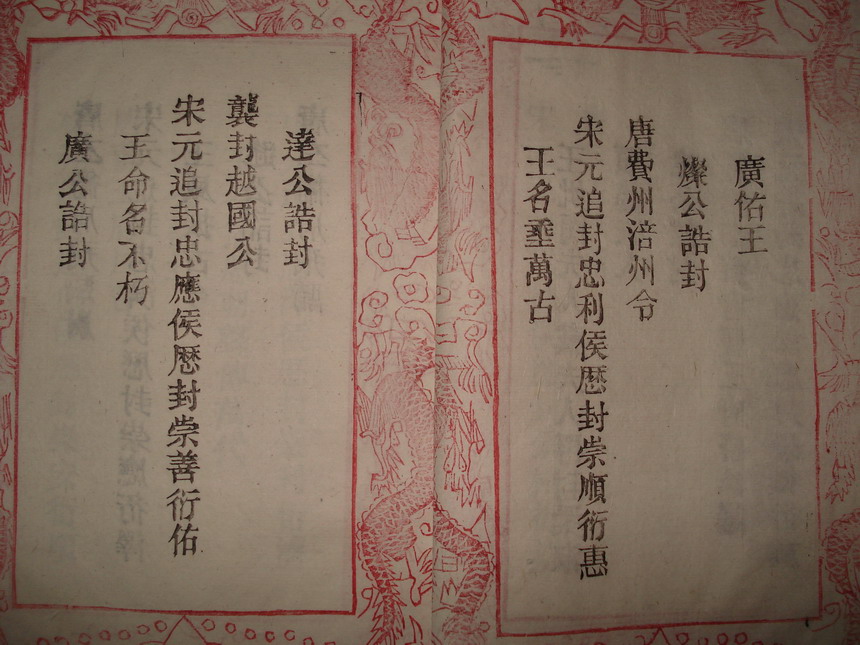 廣佑王
燦公誥封
唐費州涪州令
宋元追封忠利侯歷封崇順衍惠
王名垂萬古
達公誥封
龔封越國公
宋元追封忠應侯歷封崇善衍佑
王命名不朽
廣公誥封